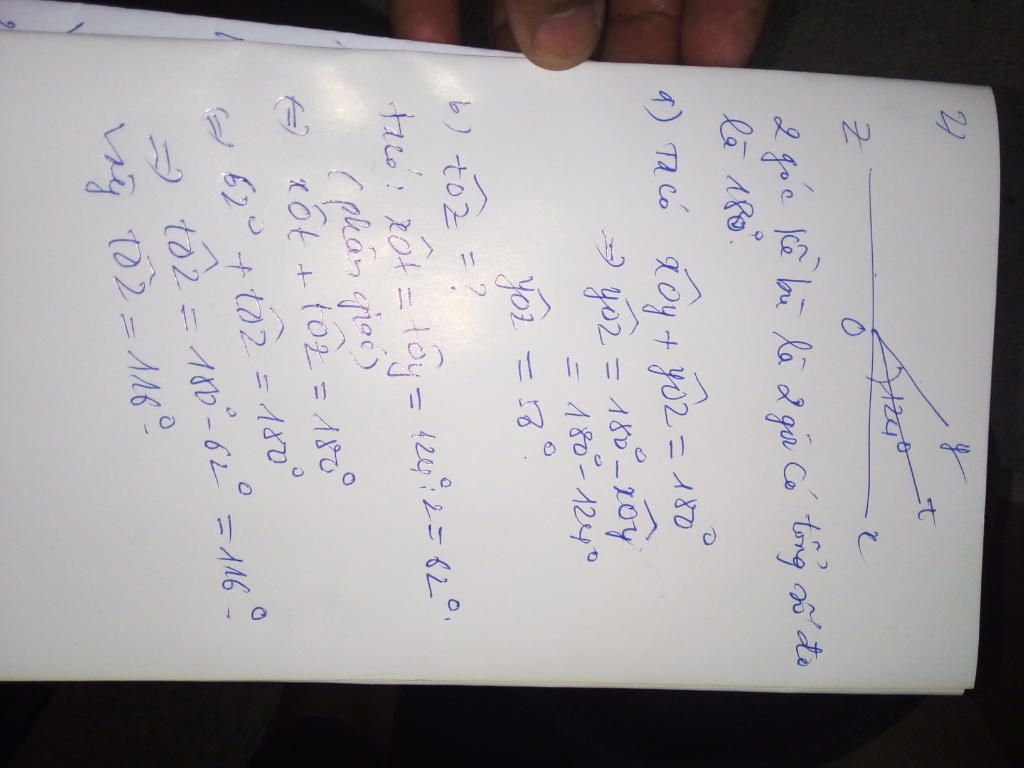 2)
z O x y t 124°
2 góc kề bù là 2 góc có tổng số đo
là 180°.
a) Ta có xÔy + yÔz = 180°
=> yÔz = 180° - xÔy
= 180° - 124°
yÔz = 58°
b) tÔz = ?
ta có: xÔt = tÔy = 124°: 2 = 62°.
(phân giác)
<=> xÔt + tÔz = 180°
<=> 62° + tÔz = 180°
=> tÔz = 180° - 62° = 116°.
Vậy tÔz = 116°.